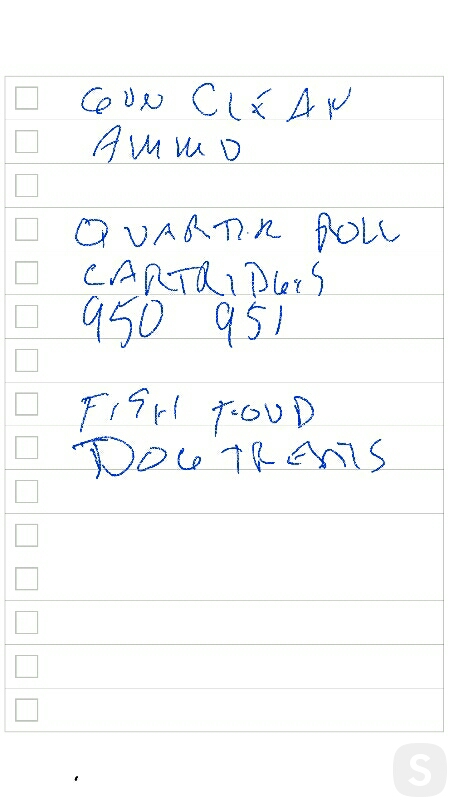 GUN CLEAN
AMMO
QUARTER ROLL
CARTRIDGES
950 951
FISH FOOD
DOG TREATS
S